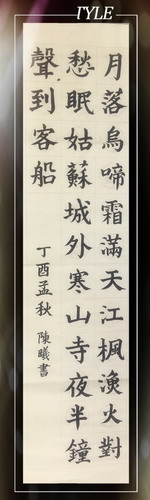 TYLE
月落烏啼霜滿天江楓漁火對
愁眠姑蘇城外寒山寺夜半鐘
聲到客船
丁酉孟秋 陳曦書